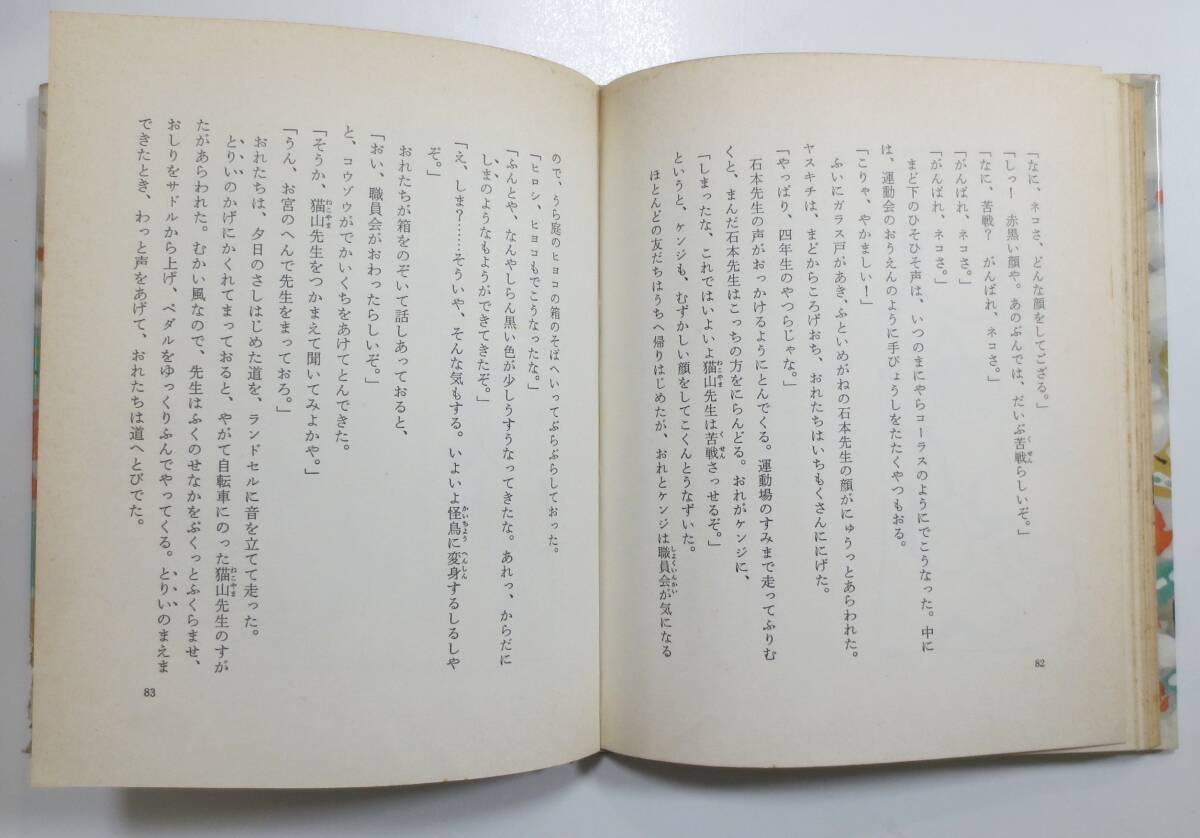 「なに、ネコさ、どんな顔をしてござる。」
「しっ！　赤黒い顔や。あのぶんでは、だいぶ苦戦らしいぞ。」
「なに、苦戦？　がんばれ、ネコさ。」
「がんばれ、ネコさ。」
「がんばれ、ネコさ。」
まど下のひそひそ声は、いつのまにやらコーラスのようにでこうなった。中に
は、運動会のおうえんのように手びょうしをたたくやつもおる。
「こりゃ、やかましい！」
ふいにガラス戸があき、ふといめがねの石本先生の顔がにゅうっとあらわれた。
ヤスキチは、まどからころげおち、おれたちはいちもくさんににげた。
「やっぱり、四年生のやつらじゃな。」
石本先生の声がおっかけるようにとんでくる。運動場のすみまで走ってふりむ
くと、まんだ石本先生はこっちの方をにらんどる。おれがケンジに、
「しまったな、これではいよいよ猫山先生は苦戦さっせるぞ。」
というと、ケンジも、むずかしい顔をしてこくんとうなずいた。
ほとんどの友だちはうちへ帰りはじめたが、おれとケンジは職員会が気になる
82
ので、うら庭のヒヨコの箱のそばへいってぶらぶらしておった。
「ヒロシ、ヒヨコもでこうなったな。」
「ふんとや、なんやしらん黒い色が少しうすうなってきたな。あれっ、からだに
しまのようなもようができてきたぞ。」
「え、しま？……そういや、そんな気もする。いよいよ怪鳥に変身するしるしや
ぞ。」
おれたちが箱をのぞいて話しあっておると、
「おい、職員会がおわったらしいぞ。」
と、コウゾウがでかいくちをあけてとんできた。
「そうか、猫山先生をつかまえて聞いてみよかや。」
「うん、お宮のへんで先生をまっておろ。」
おれたちは、夕日のさしはじめた道を、ランドセルに音を立てて走った。
とりいのかげにかくれてまっておると、やがて自転車にのった猫山先生のすが
たがあらわれた。むかい風なので、先生はふくのせなかをぷくっとふくらませ、
おしりをサドルから上げ、ペダルをゆっくりふんでやってくる。とりいのまえま
できたとき、わっと声をあげて、おれたちは道へとびでた。
83